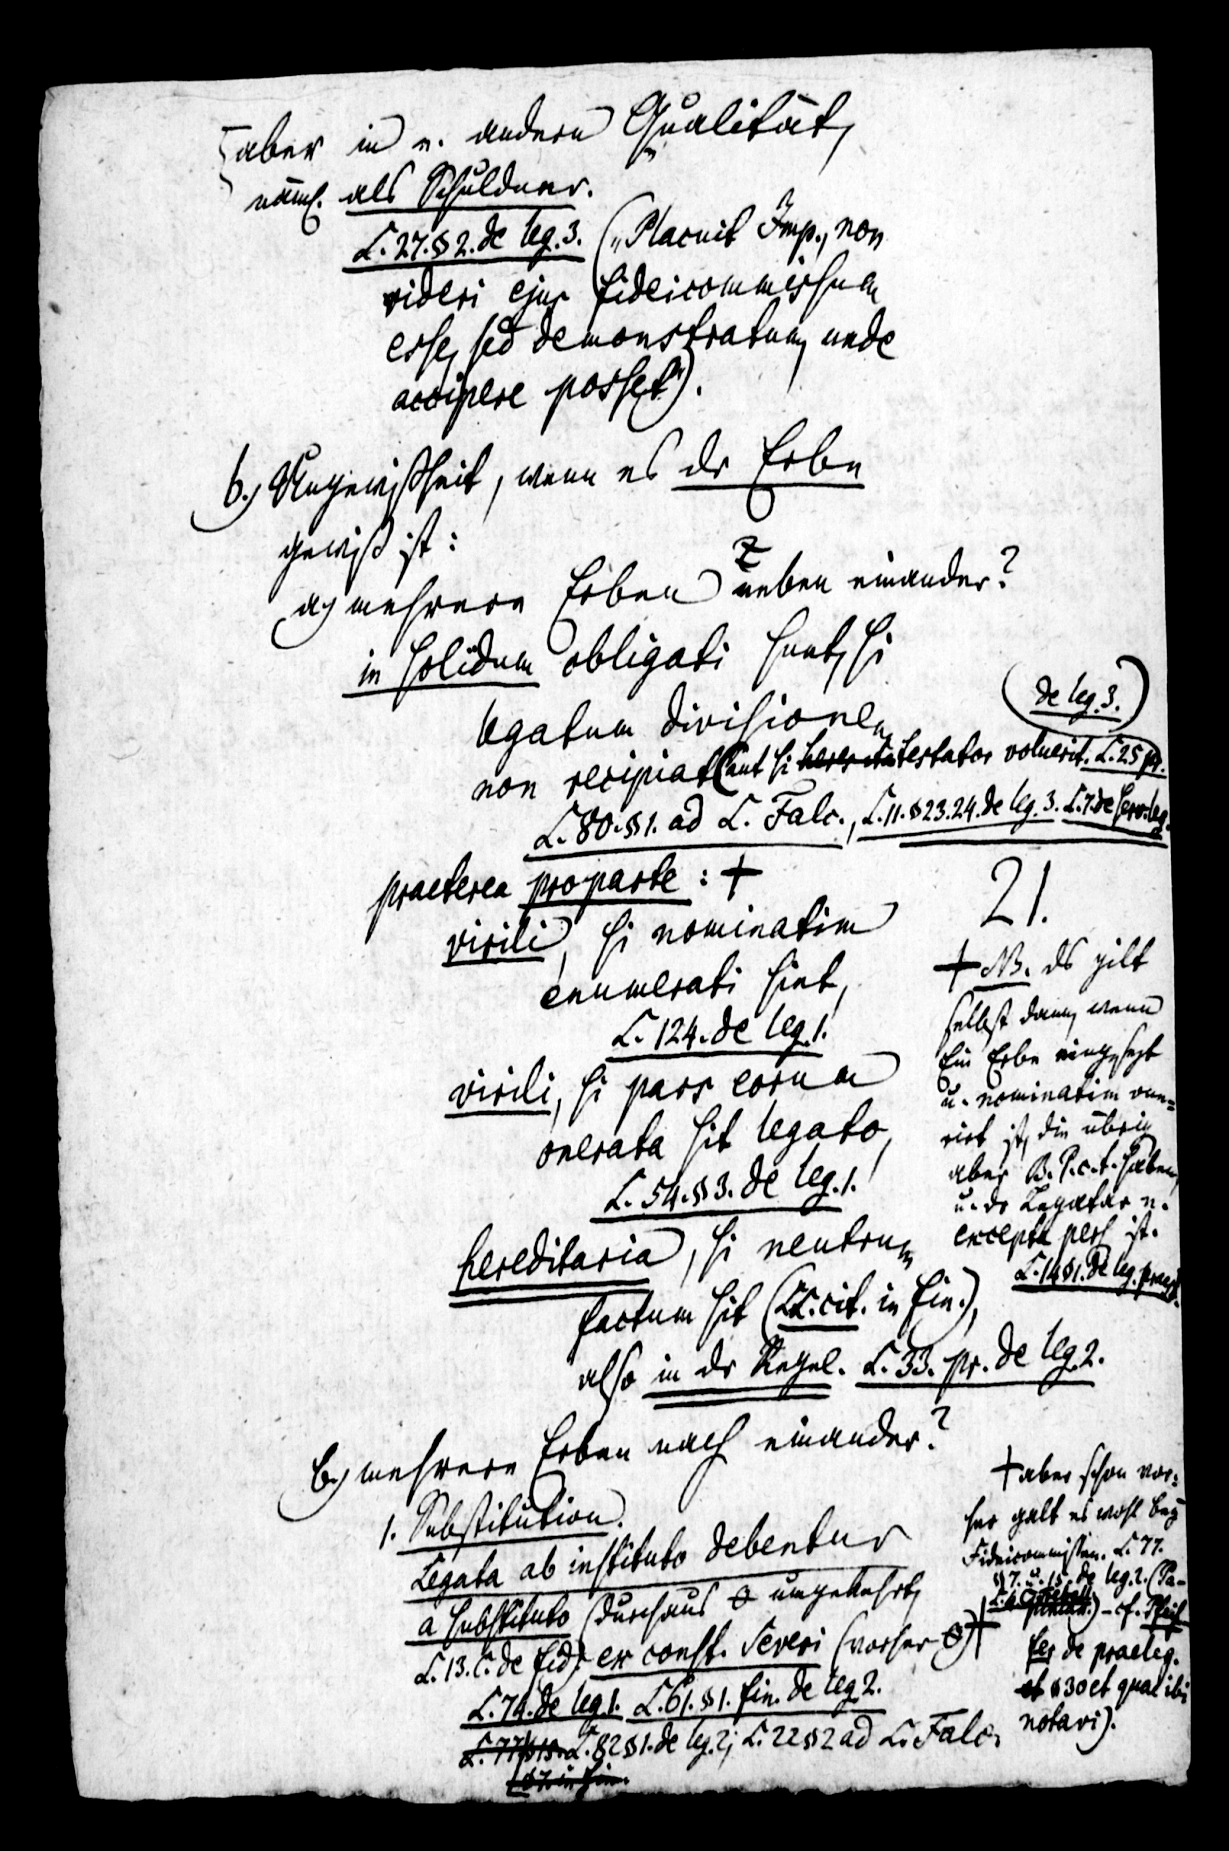 aber in e. andern Qualität,
näml. als Schuldner.
L. 27. § 2. de leg. 3. („Placuit Imp., non
videri ejus fideicommissum
esse, sed demonstratum, unde
accipere posset“).
b.) Ungewißheit, wenn es dr Erbe
gewiß ist:
a) mehrere Erben neben einander?
in solidum obligati sunt, si
legatum divisionem
non recipiat (aut si testator voluerit. L. 25 pr.
de leg. 3.)
L. 80. § 1. ad L. Falc., L. 11. § 23. 24. de leg. 3. L. 7. de serv. leg.
praeterea pro parte: +
virili, si nominatim
enumerati sint,
L. 124. de leg. 1.
virili, si pars eorum
onerata sit legato,
L. 54. § 3. de leg. 1.
hereditaria, si neutrum
factum sit (LL. cit. in fin.),
also in dr Regel. L. 33. pr. de leg. 2.
21.
+ NB. ds gilt
selbst dann, wenn
Ein Erbe eingesezt
u. nominatim one=
rirt ist, die übrig
aber B. P. c. t. haben,
u. dr Legatar e.
excepta pers ist.
L. 14 § 1. de leg. praest.
b.) mehrere Erben nach einander?
1. Substitution.
Legata ab instituto debentur
a substituto (durchaus 0 umgekehrt,
L. 13. C. de fid.) ex const. Severi (vorher 0) +
L. 74. de leg. 1. L. 61. § 1. fin. de leg. 2.
L. 82 § 1. de leg. 2; L. 22 § 2 ad L. Falc.
+ aber schon vor=
her galt es wohl bey
Fideicommissen. L. 77.
§ 7. u. 15. de leg. 2. (Pa-
pinian.) – cf.
de praeleg.
§ 30 et quae ibi
notavi).